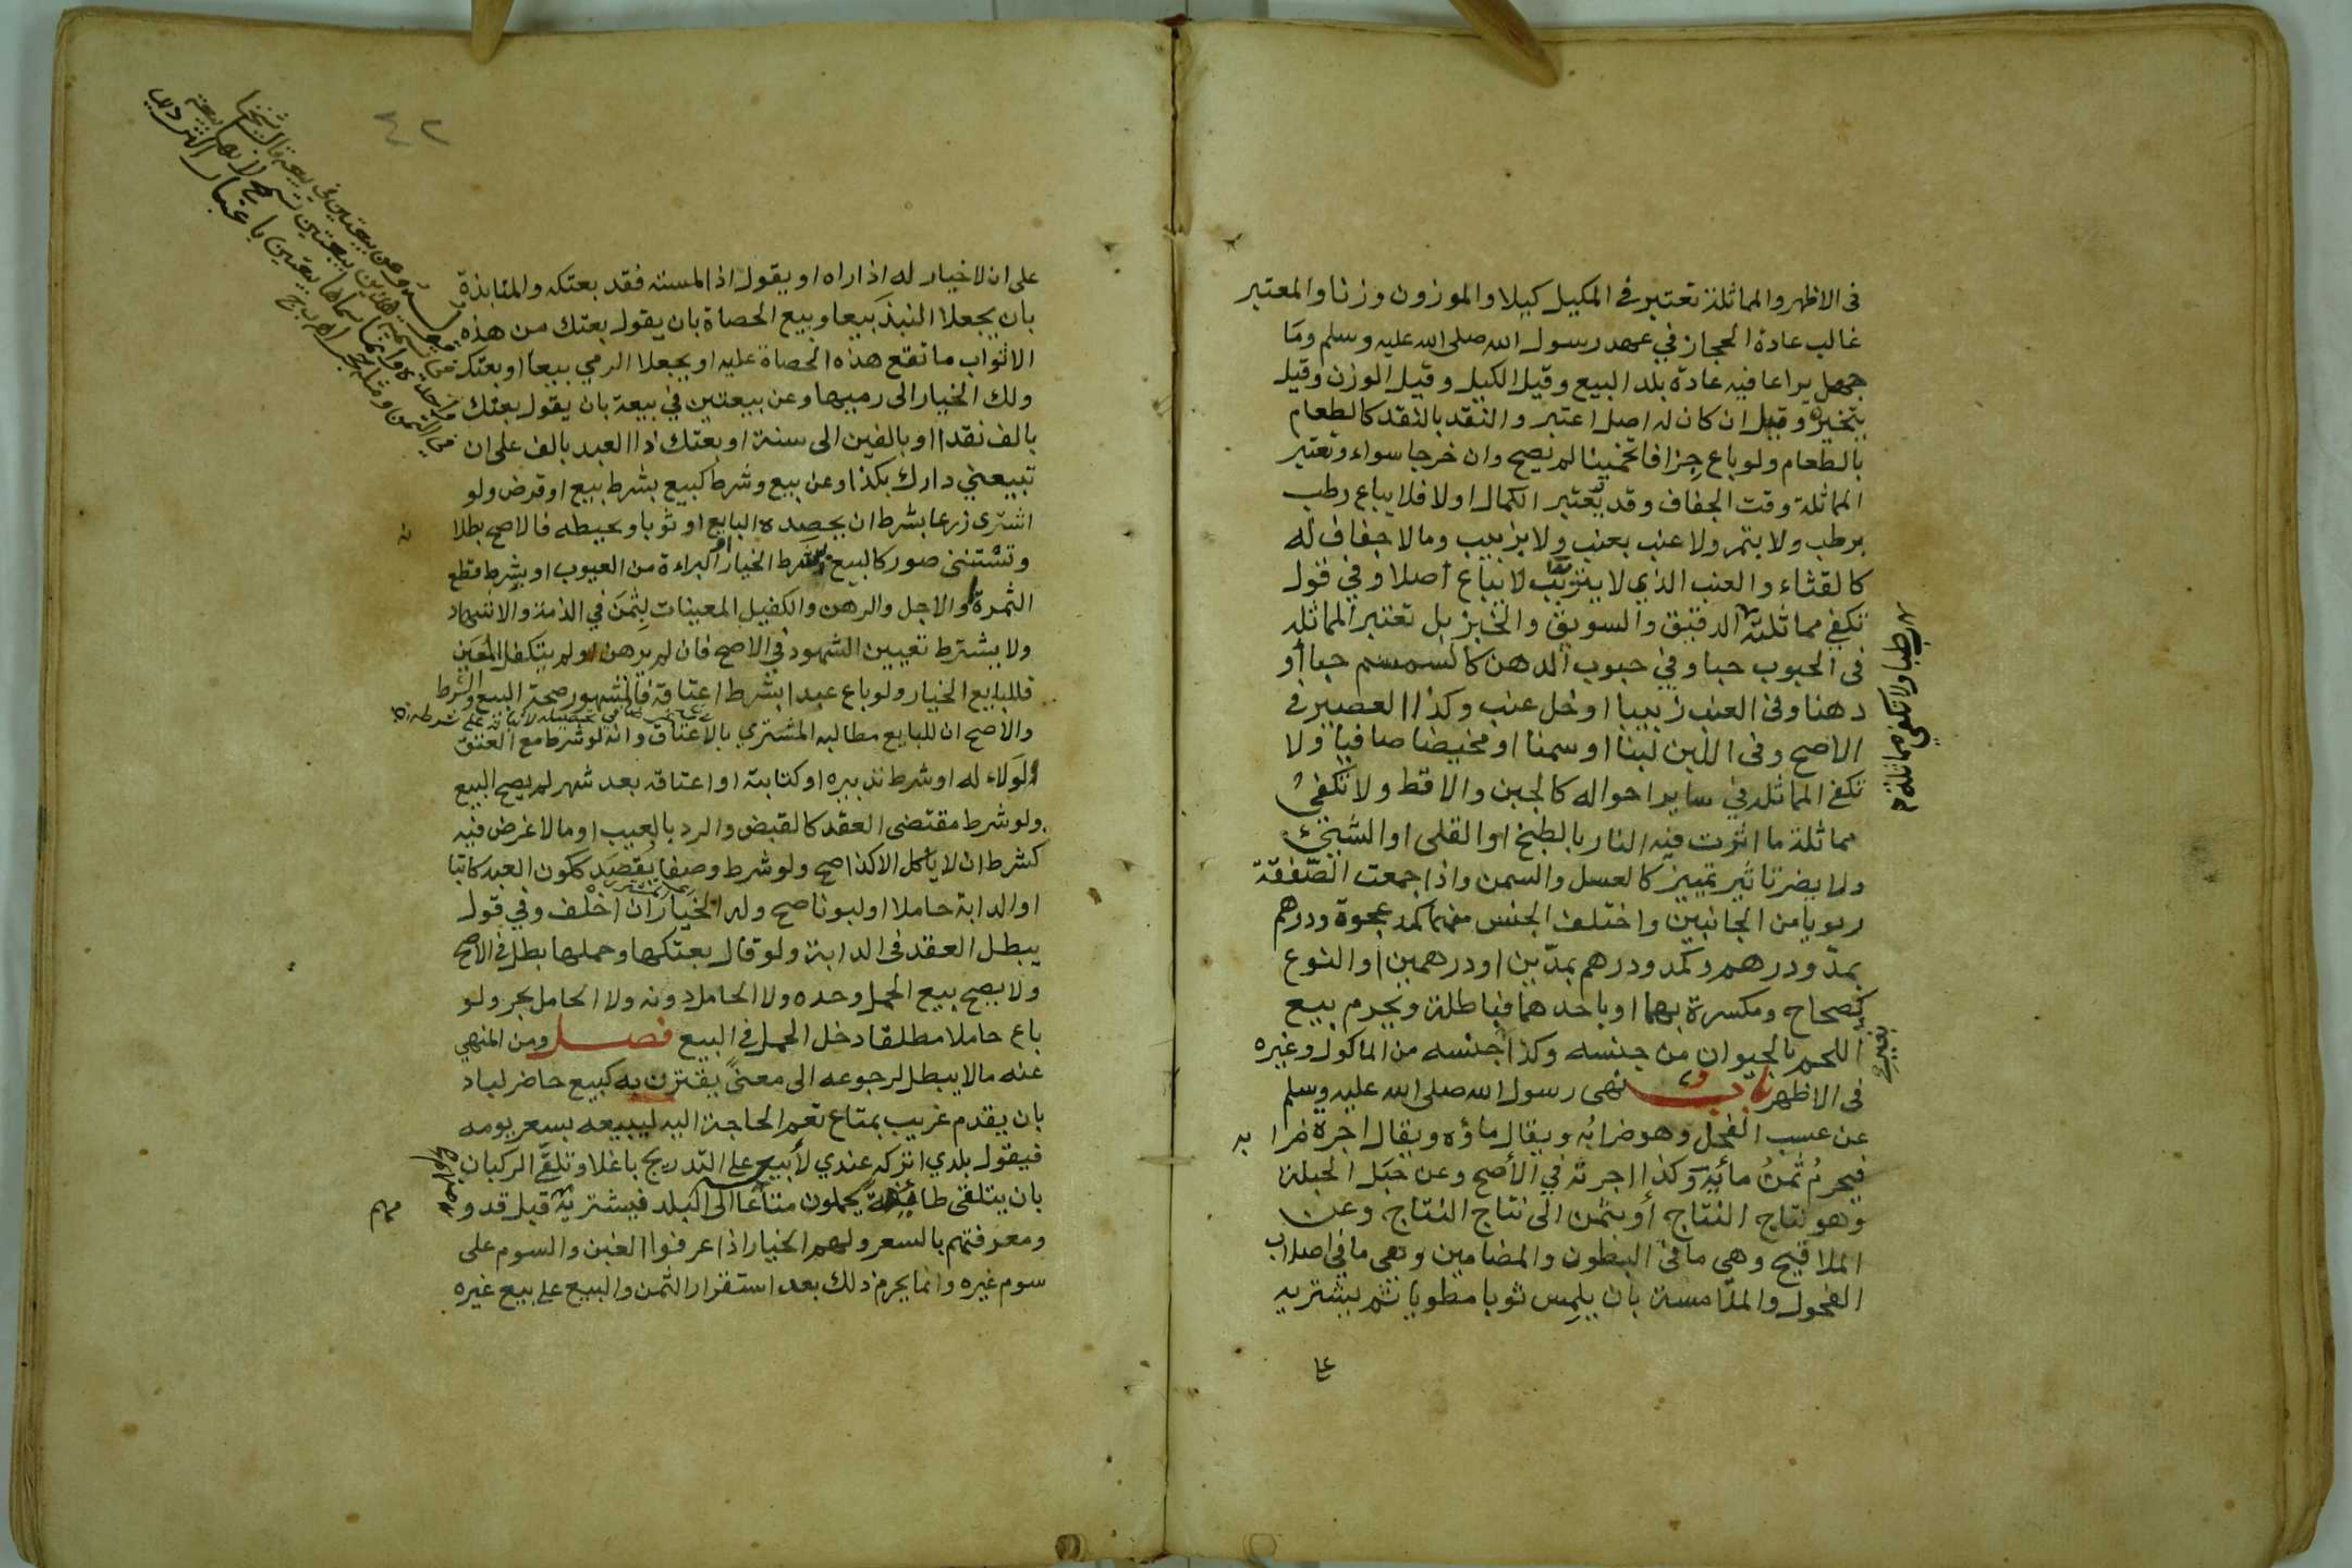 فى الاظهر والمماثلة تعتبر في المكيل كيلا والموزون وزنا والمعتبر
غالب عادة الحجاز في عهد رسول الله صلى الله عليه وسلم وما
جهل يراعا فيه عادة بلد البيع وقيل الكيل وقيل الوزن وقيل
يتخير وقيل ان كان له اصل اعتبر والنقد بالنقد كالطعام
بالطعام ولو باع جزافا تخمينا لم يصح وان خرجا سواء وتعتبر
المماثلة وقت الجفاف وقد يعتبر الكمال اولا فلا يباع رطب
برطب ولا بتمر ولا عنب بعنب ولا بزبيب وما لا جفاف له
كالقثاء والعنب الذي لا يتزبب لا يباع اصلا وفي قول
تكفي مماثلته الدقيق والسويق والخبز بل تعتبر المماثلة
رطبا ولا تكفي مماثلة
فى الحبوب حبا وفي حبوب الدهن كالسمسم حبا أو
دهنا وفى العنب زبيبا او خل عنب وكذا العصير في
الاصح وفى اللبن لبنا او سمنا او مخيضا صافيا ولا
تكفي المماثلة في ساير احواله كالجبن والاقط ولا تكفي
مماثلة ما اثرت فيه النار بالطبخ او القلى او الشي
ولا يضر تاثير تمييز كالعسل والسمن واذا جمعت الصفقة
ربويا من الجانبين واختلف الجنس منهما كمد عجوة ودرهم
بمد ودرهم وكمد ودرهم بمدّين او درهمين او النوع
كصحاح ومكسرة بهما او باحدهما فباطلة ويحرم بيع
اللحم بالحيوان من جنسه وكذا جنسه من الماكول وغيره
بغير
فى الاظهر باب نهى رسول الله صلى الله عليه وسلم
عن عسب الفحل وهو ضرابُه ويقال ماؤه ويقال اجرة ضرابه
فيحرم ثمنُ مائه وكذا اجرته في الأصح وعن حَبَل الحبلة
وهو نتاج النتاج أو بثمن الى نتاج النتاج وعن
الملاقيح وهى ما فى البطون والمضامين وهى ما في اصلاب
الفحول والملامسة بان يلمس ثوبا مطويا ثم يشتريه
على
٤٢
على ان لا خيار له اذا راه او يقول اذا لمسته فقد بعتكه والمنابذة
بان يجعلا النبذَ بَيعا وبيع الحصاة بان يقول بعتك من هذه
الاثواب ما تقع هذه الحصاة عليه او يجعلا الرمي بيعا او بعتك
ولك الخيار الى رميها وعن بيعتين في بيعة بان يقول بعتك
بالف نقدا او بالفين الى سنة او بعتك ذا العبد بالف على ان
تبيعني دارك بكذا وعن بيع وشرط كبيع بشرط بيع او قرض ولو
اشترى زرعا بشرط ان يحصده البايع او ثوبا ويخيطه فالاصح بطلانه
وتستثنى صور كالبيع بشرط الخيار او البراءة من العيوب او بشرط قطع
الثمرة والاجل والرهن والكفيل المعينات لثمن في الذمة والاشهاد
ولا يشترط تعيين الشهود في الاصح فان لم يرهن او لم يتكفل المعين
فللبايع الخيار ولو باع عبدا بشرط اعتاقه فالمشهور صحة البيع والشرط
والاصح ان للبايع مطالبه المشتري بالاعتاق وانه لو شرط مع العتق
الوَلاء له او شرط تدبيره او كتابته او اعتاقه بعد شهر لم يصح البيع
ولو شرط مقتضى العقد كالقبض والرد بالعيب او ما لا غرض فيه
كشرط ان لا ياكل الا كذا صح ولو شرط وصفا يُقصَد ككون العبد كاتبا
او الدابة حاملا او لبونا صح وله الخيار ان اخلف وفي قول
يبطل العقد فى الدابة ولو قال بعتكها وحملها بطل في الاصح
ولا يصح بيع الحمل وحده ولا الحامل دونه ولا الحامل بحر ولو
باع حاملا مطلقا دخل الحمل في البيع فصل ومن المنهي
عنه ما لا يبطل لرجوعه الى معنًى يقترن به كبيع حاضر لباد
بان يقدم غريب بمتاع تعم الحاجة اليه ليبيعه بسعر يومه
فيقول بلدي اتركه عندي لأبيعه على التدريج باغلا وتلقّي الركبان
بان يتلقى طائفة يحملون متاعًا الى البلد فيشتريه قبل قدومهم
ومعرفتهم بالسعر ولهم الخيار اذا عرفوا الغبن والسوم على
سوم غيره وانما يحرم ذلك بعد استقرار الثمن والبيع على بيع غيره